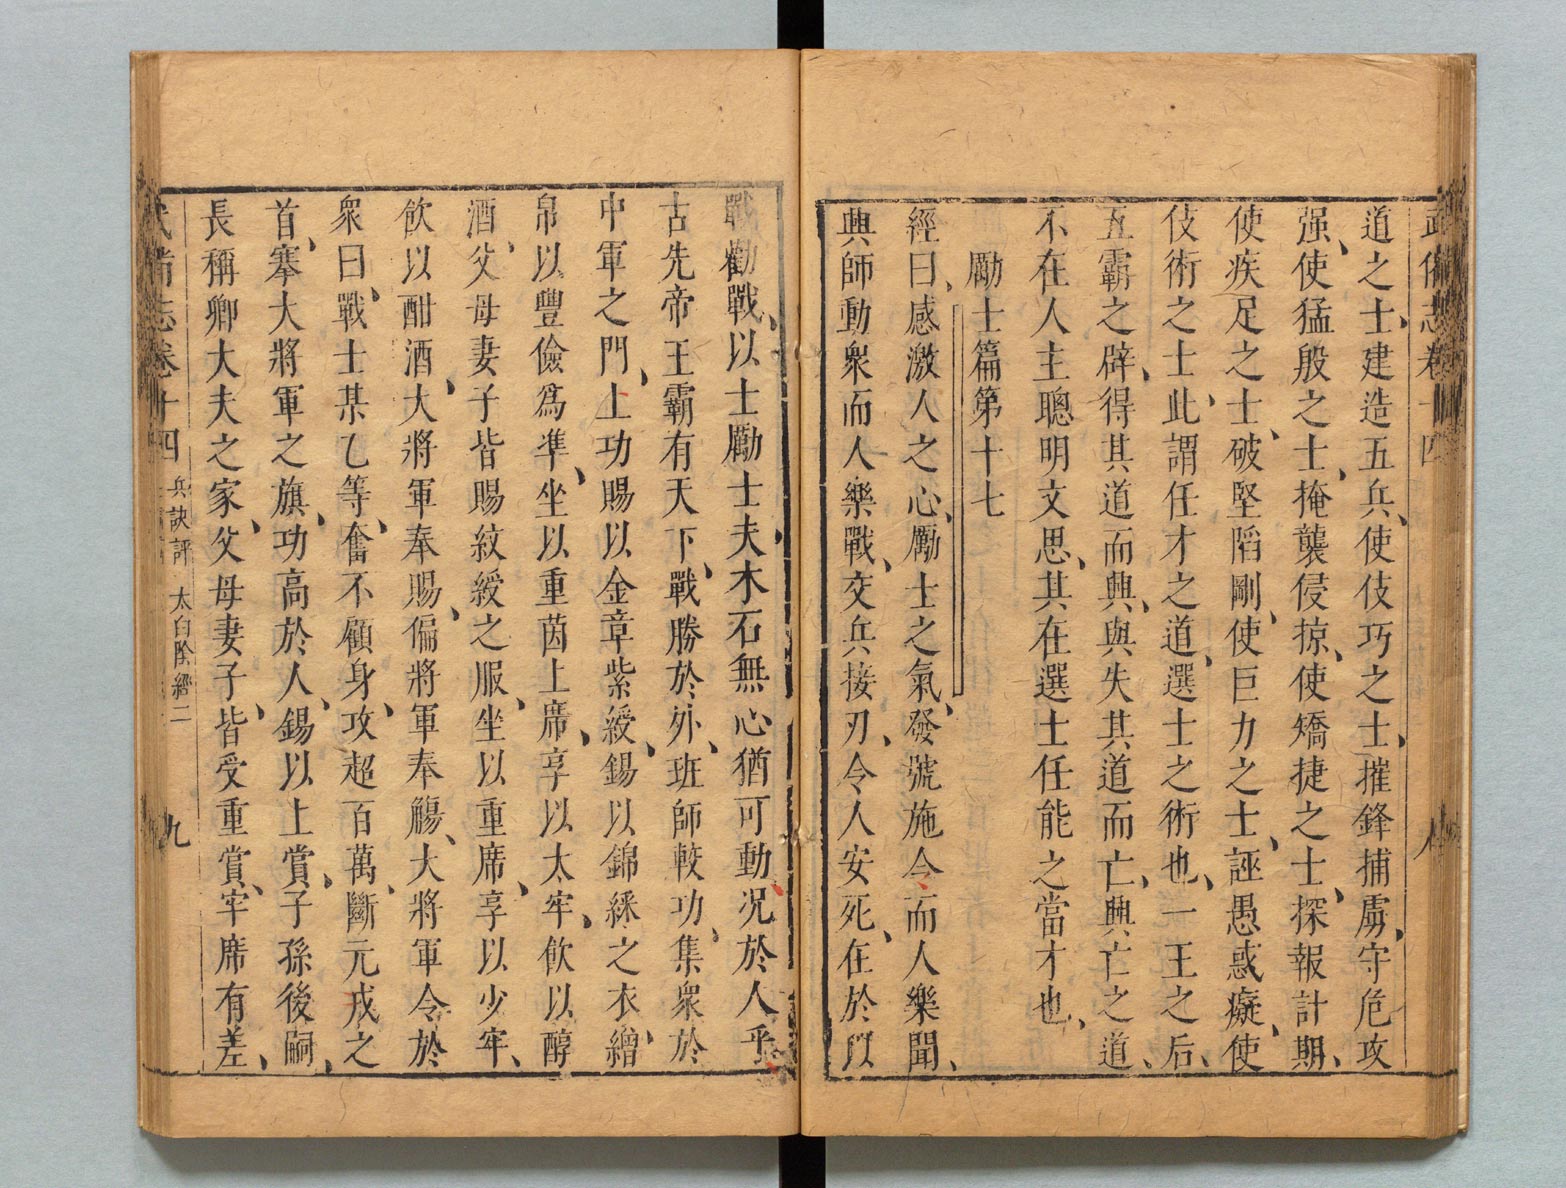 武備志卷十四
道之士、建造五兵、使伎巧之士、摧鋒捕虜、守危攻
强、使猛般之士、掩襲侵掠、使矯捷之士、探報計期、
使疾足之士、破堅陷剛、使巨力之士、誣愚惑癡、使
伎術之士此、謂任才之道、選士之術也、一王之后、
五霸之辟、得其道而興、與失其道而亡、興亡之道、
不在人主聰明文思、其在選士任能之當才也、
勵士篇第十七
經曰、感激人之心、勵士之氣、發號施令而人樂聞、
興師動衆而人樂戰、交兵接刃、令人安死、在於以
戰勸戰、以士勵士、夫木石無心猶可動、况於人乎
古先帝王霸有天下、戰勝於外、班師較功、集衆於
中軍之門、上功賜以金章紫綬、錫以錦綵之衣、繒
帛以豐儉爲準、坐以重茵上席、享以太牢、飲以醇
酒、父母妻子皆賜紋綬之服、坐以重席、享以少牢、
飲以酣酒、大將軍奉賜、偏將軍奉觴、大將軍令於
衆曰、戰士某乙等、奮不顧身、攻超百萬、斷元戎之
首、搴大將軍之旗、功高於人、錫以上賞、子孫後嗣、
長稱卿大夫之家、父母妻子、皆受重賞、牢席有差、
武備志卷十四 兵訣評 太白陰經二 九